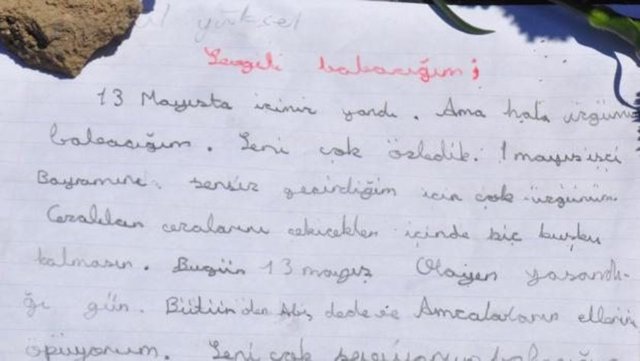 yüksel
Sevgili babacığım;
13 Mayısta içiniz yandı. Ama hala üzgünüm
babacığım. Seni çok özledik. 1 mayıs işçi
Bayramını sensiz geçirdiğim için çok üzgünüm.
cezalarını çekicekler içinde hiç kuşku
kalmasın. Bugün 13 mayıs Olayın yaşandı-
ğı gün. Bütün dede ve Amcalarımın ellerini
öpüyorum. Seni çok seviyorum